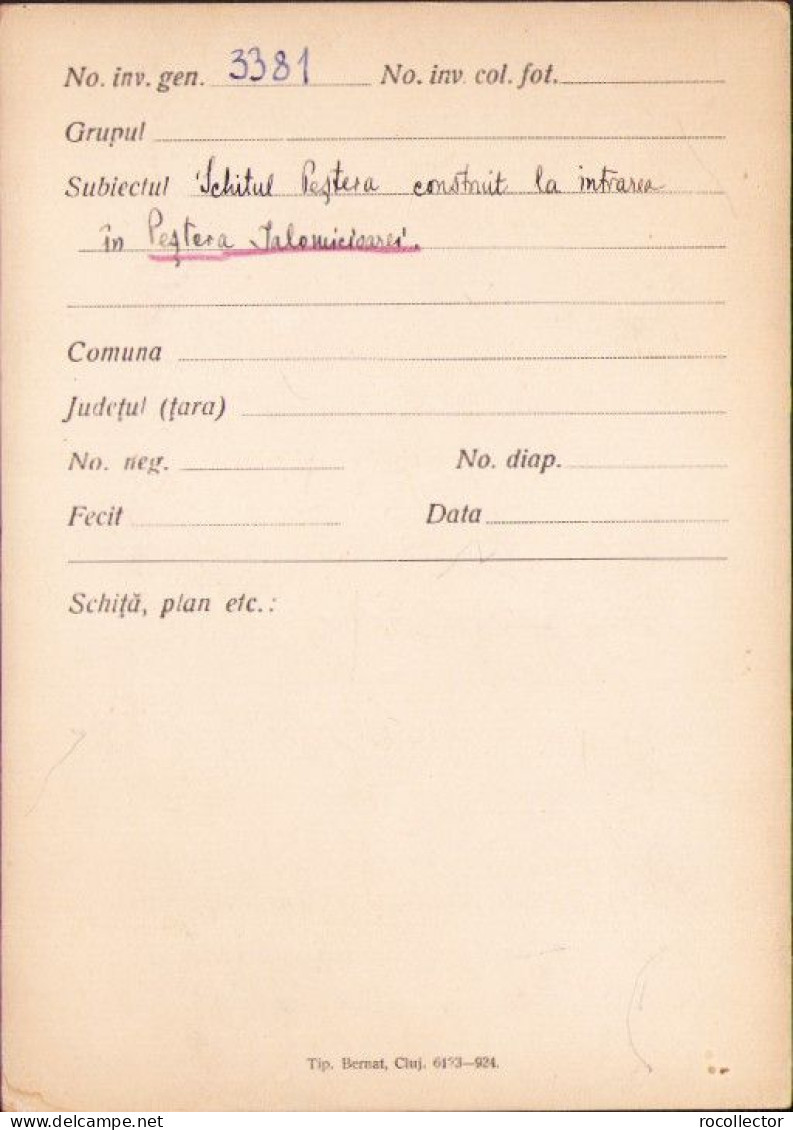 No. inv. gen. 3381 No. inv. col. fot.
Grupul
Subiectul Schitul Peștera construit la intrarea
în Peștera Ialomicioarei.
Comuna
Județul (țara)
No. neg. No. diap.
Fecit Data
Schiță, plan etc.:
Tip. Bernat, Cluj.
www.delcampe.net rocollector